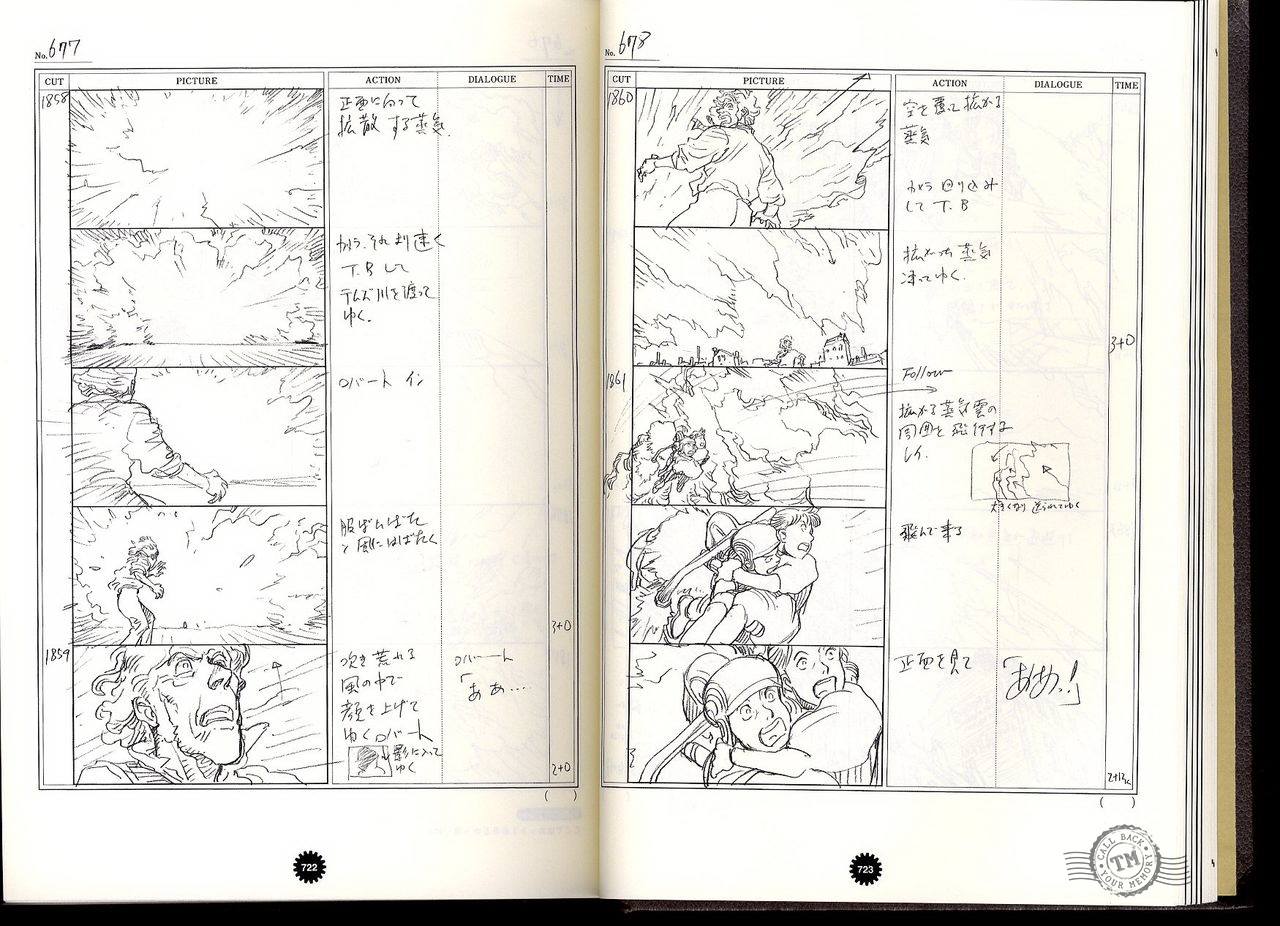 No. 677
CUT PICTURE ACTION DIALOGUE TIME
1858
正面に向って
拡散する蒸気.
カメラ.それより速く
T.Bして
テムズ川を渡って
ゆく.
ロバート イン
服ばたばた
風にはばたく
3+0
1859
吹き荒れる
風の中で
顔を上げて
ゆくロバート
影に入って
ゆく
ロバート
「ああ....
2+0
( )
722
No. 678
CUT PICTURE ACTION DIALOGUE TIME
1860
空を覆って拡がる
蒸気
カメラ 回り込み
して T.B
拡がった蒸気
凍ってゆく.
3+0
1861
Follow
拡がる蒸気雲の
周囲を飛行する
レイ.
大きくなり 送られてゆく
飛んで来る
正面を見て
「ああっ!」
( )
723
CALL BACK
TM
YOUR MEMORY